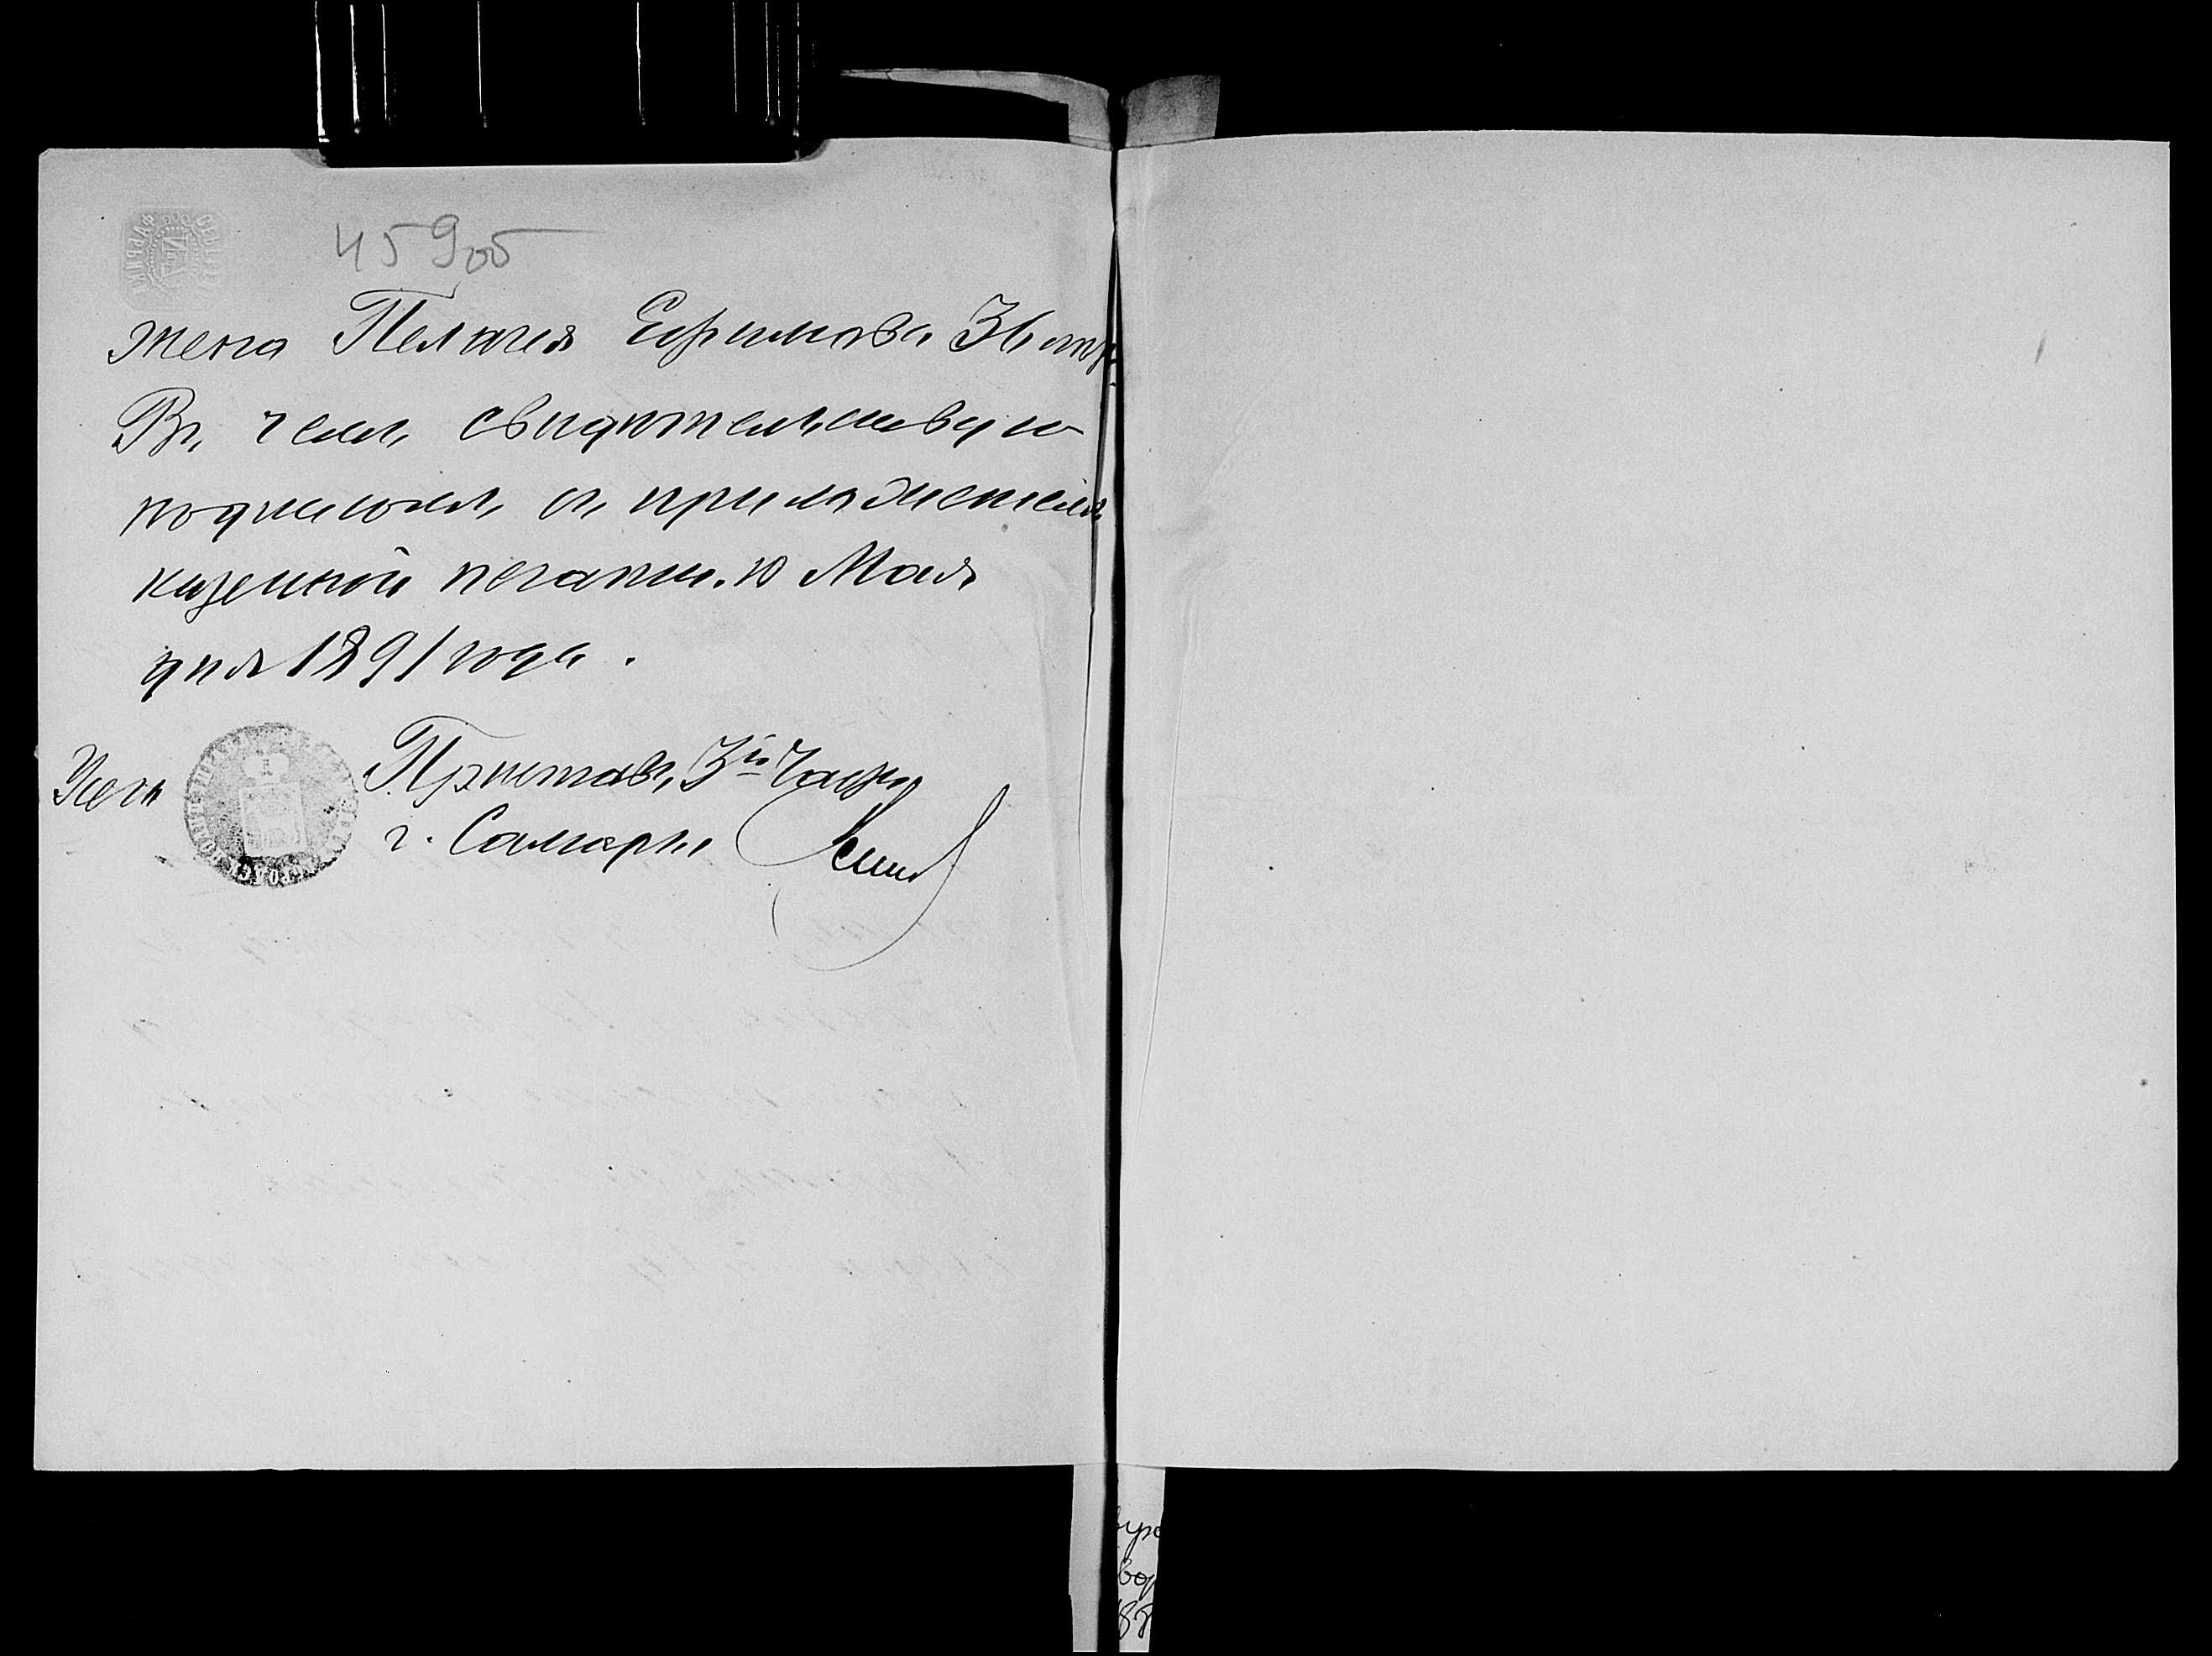 459об
жена Пелагея Ефимова 36 лѣтъ
Въ чемъ свидѣтельствую
подписомъ съ приложеніемъ
казенной печати. 10 Мая
дня 1891 года.
Приставъ, 3й Части
г. Самары